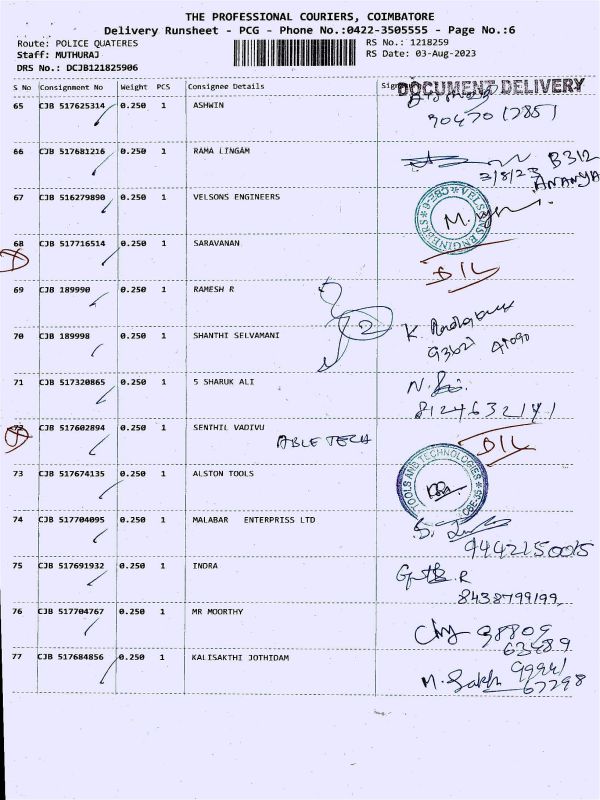 THE PROFESSIONAL COURIERS, COIMBATORE
Delivery Runsheet - PCG - Phone No.:0422-3505555 - Page No.:6
Route: POLICE QUATERES RS No.: 1218259
Staff: MUTHURAJ RS Date: 03-Aug-2023
DRS No.: DCJB121825906
S No Consignment No Weight PCS Consignee Details
DOCUMENT DELIVERY
65 CJB 517625314 0.250 1 ASHWIN
66 CJB 517681216 0.250 1 RAMA LINGAM
B312
3/8/23 ANANYA
67 CJB 516279890 0.250 1 VELSONS ENGINEERS
VELSONS ENGINEERS CBE-6
68 CJB 517716514 0.250 1 SARAVANAN
D/L
69 CJB 189990 0.250 1 RAMESH R
2
70 CJB 189998 0.250 1 SHANTHI SELVAMANI
71 CJB 517320865 0.250 1 S SHARUK ALI
8124632141
72 CJB 517602894 0.250 1 SENTHIL VADIVU
ABLE TECH
D/L
73 CJB 517674135 0.250 1 ALSTON TOOLS
TOOLS AND TECHNOLOGIES
74 CJB 517704095 0.250 1 MALABAR ENTERPRISS LTD
9442150015
75 CJB 517691932 0.250 1 INDRA
8438799199
76 CJB 517704767 0.250 1 MR MOORTHY
98809
63489
77 CJB 517684856 0.250 1 KALISAKTHI JOTHIDAM
99941
67298